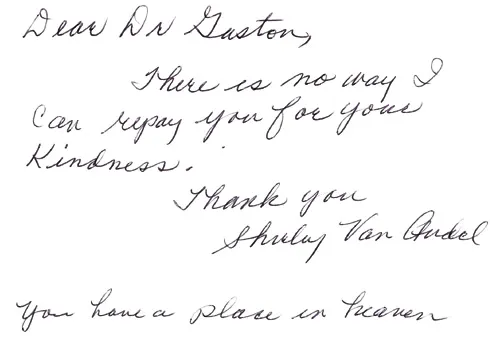 Dear Dr Guston,
There is no way I
Can repay you for your
Kindness.
Thank you
Shirley Van Andel
You have a place in heaven